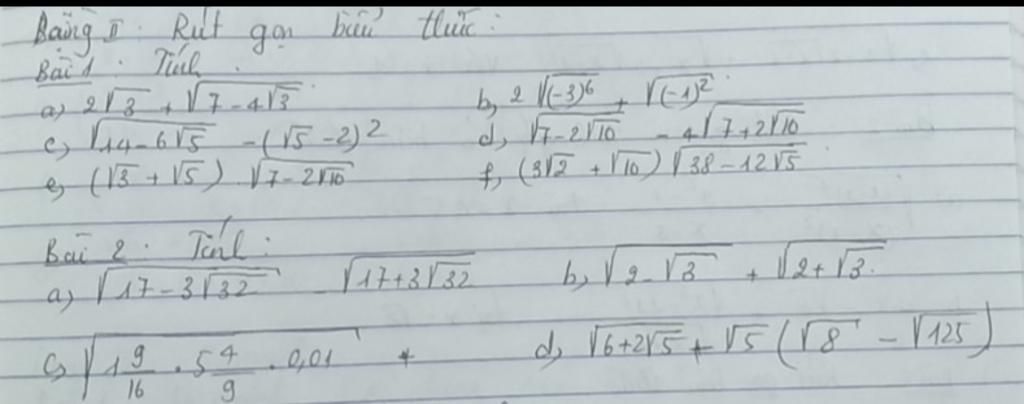 Bảng II : Rút gọn biểu thức :
Bài 1 : Tính :
a, 2√3 + √(7 - 4√3) b, 2√(-3)⁶ + √(-1)²
c, √(14 - 6√5) - (√5 - 2)² d, √(7 - 2√10) - 4√(7 + 2√10)
e, (√3 + √5) . √(7 - 2√10) f, (3√2 + √10) √(38 - 12√5)
Bài 2 : Tính :
a, √(17 - 3√32) - √(17 + 3√32) b, √(2 - √3) + √(2 + √3)
c, √(1 9/16 . 5 4/9 . 0,01) d, √(6 + 2√5) + √5 (√8 - √125)